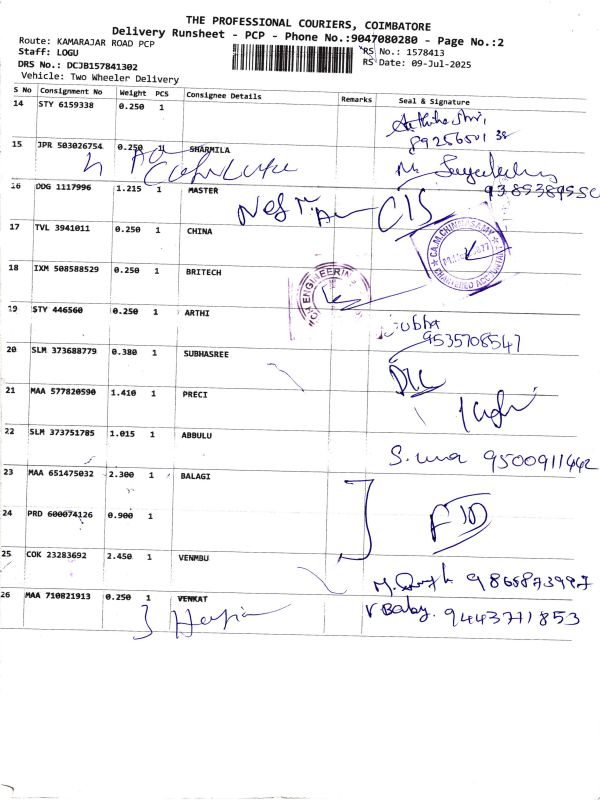 THE PROFESSIONAL COURIERS, COIMBATORE
Delivery Runsheet - PCP - Phone No.:9047080280 - Page No.:2
Route: KAMARAJAR ROAD PCP
RS No.: 1578413
Staff: LOGU
RS Date: 09-Jul-2025
DRS No.: DCJB157841302
Vehicle: Two Wheeler Delivery
S No Consignment No Weight PCS Consignee Details Remarks Seal & Signature
14 STY 6159338 0.250 1
15 JPR 503026754 0.250 1 SHARMILA
16 DDG 1117996 1.215 1 MASTER
CIS
17 TVL 3941011 0.250 1 CHINA
CA.M.CHINNASAMY
CHARTERED ACCOUNTANT
18 IXM 508588529 0.250 1 BRITECH
ENGINEERING
19 STY 446560 0.250 1 ARTHI
9535708547
20 SLM 373688779 0.380 1 SUBHASREE
21 MAA 577820590 1.410 1 PRECI
22 SLM 373751785 1.015 1 ABBULU
9500911442
23 MAA 651475032 2.300 1 BALAGI
24 PRD 600074126 0.900 1
25 COK 23283692 2.450 1 VENMBU
9865873997
26 MAA 710821913 0.250 1 VENKAT
V Baby. 9443771853